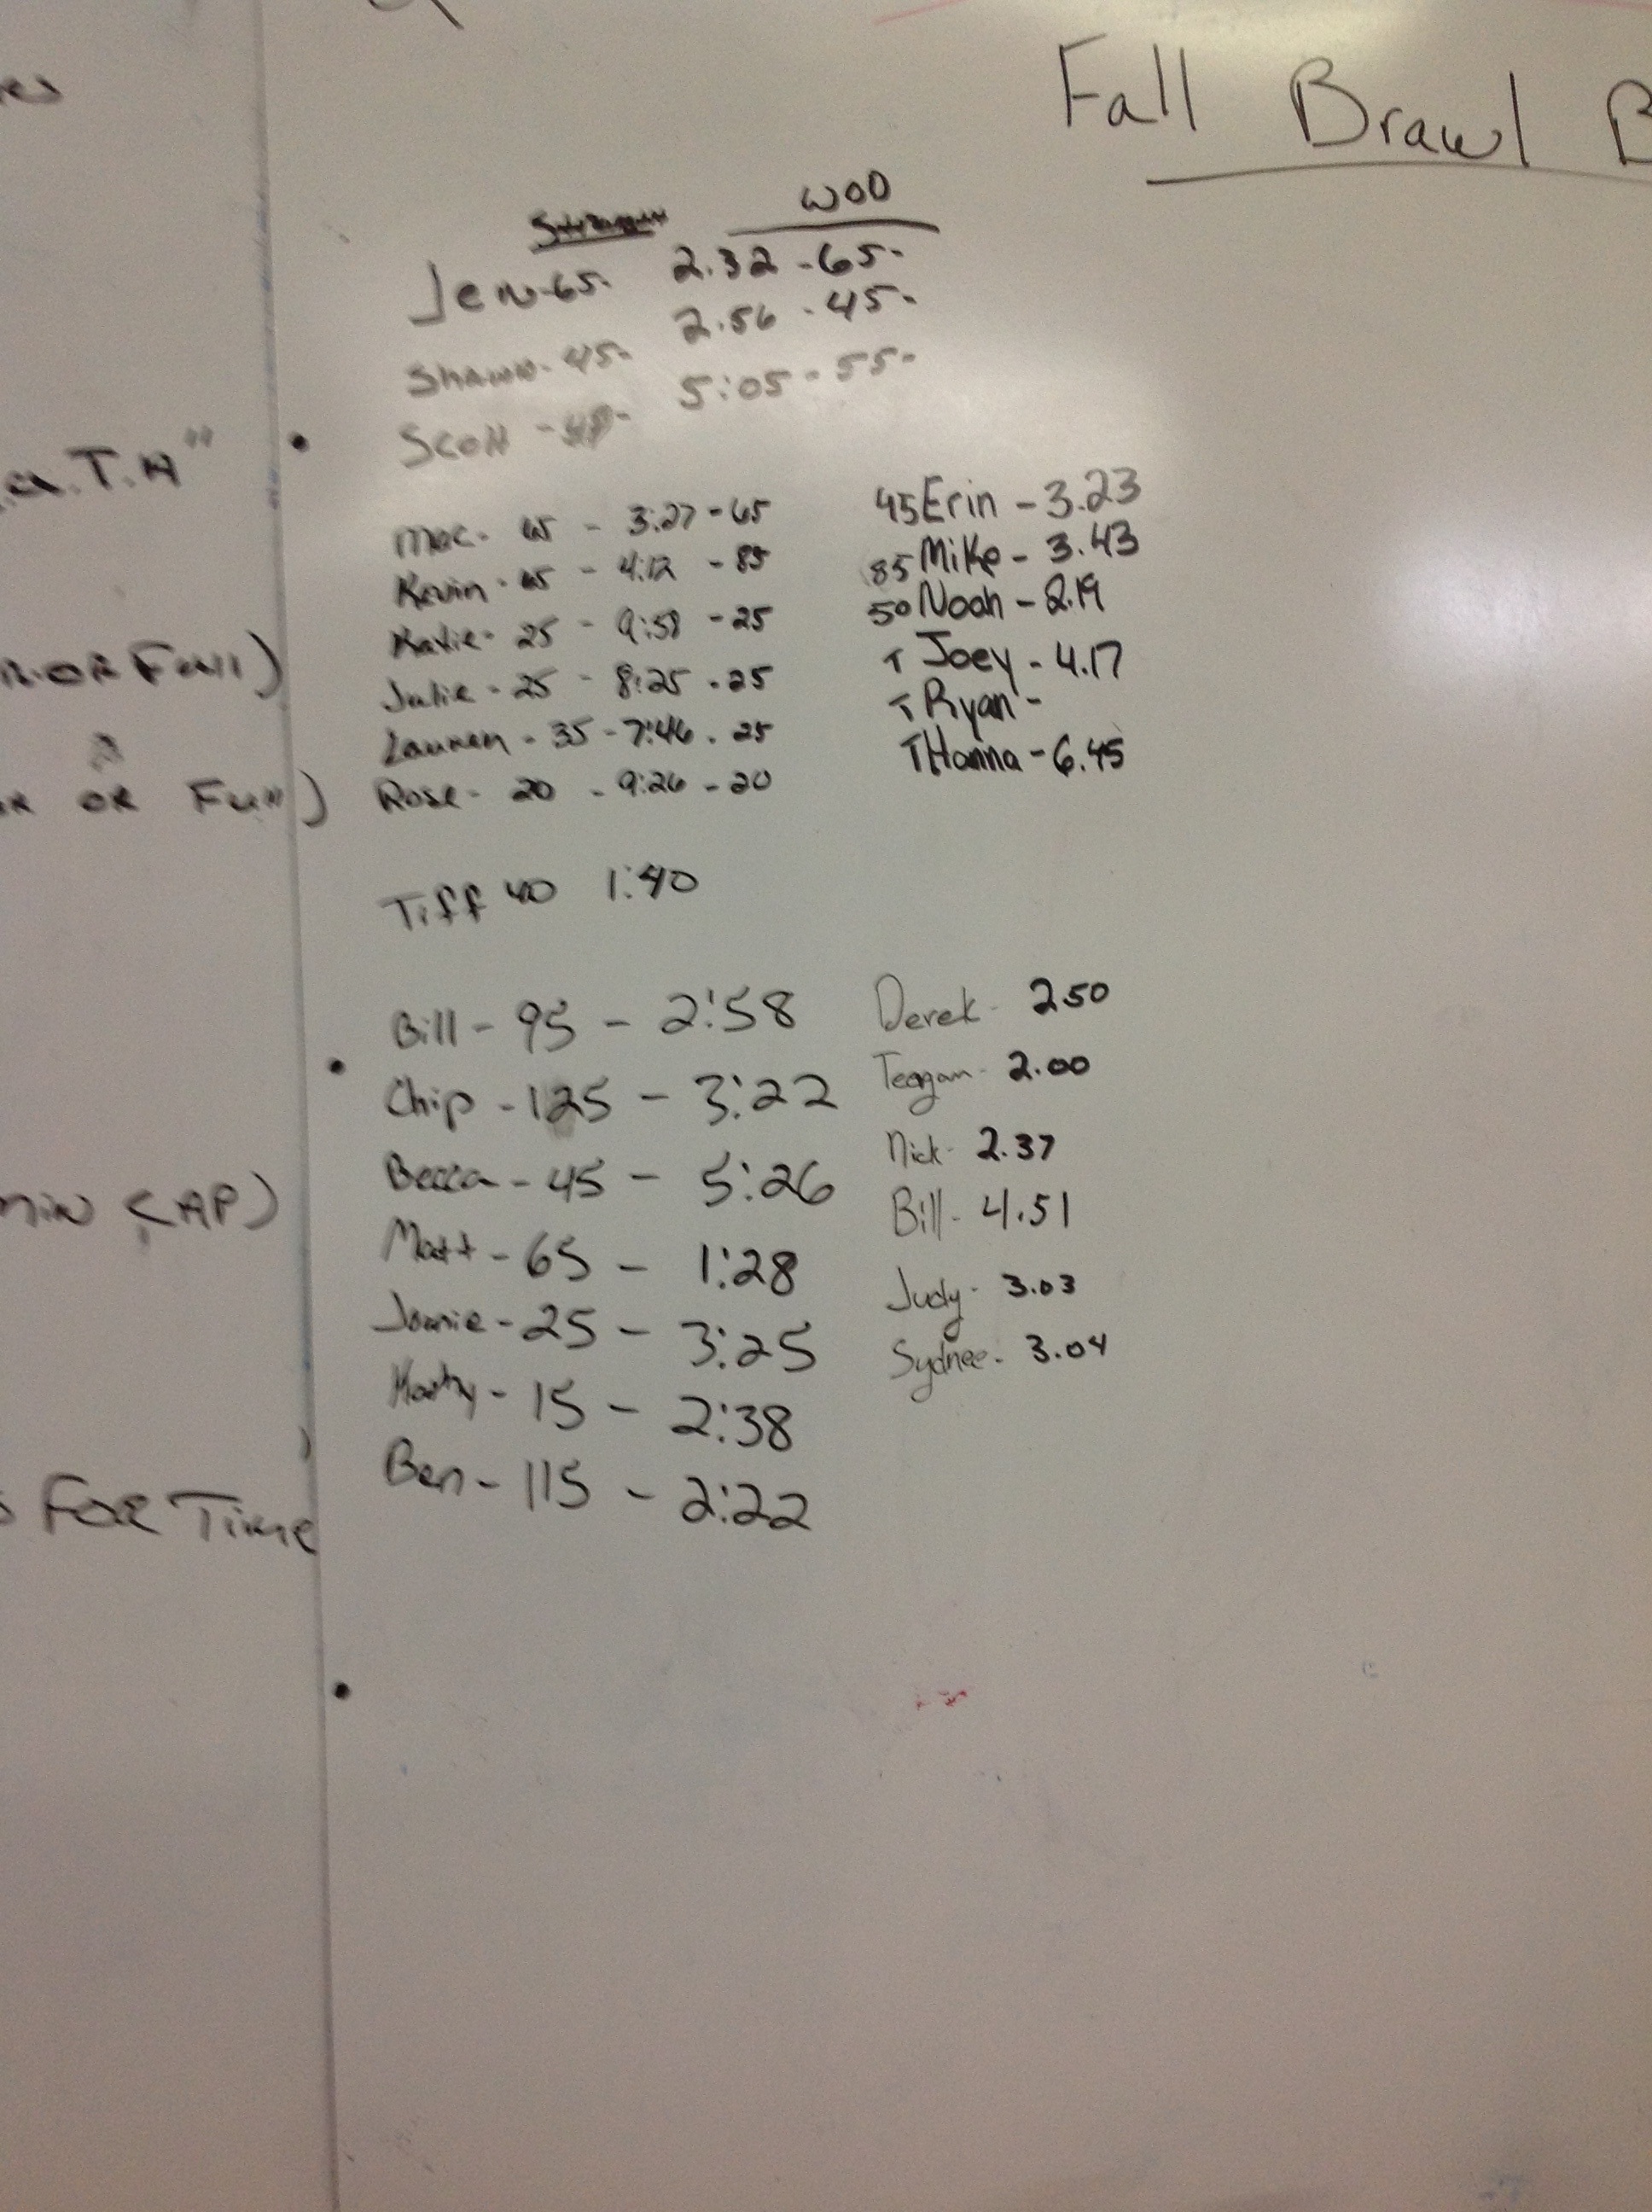 Fall Brawl B
WOD
Jen-65- 2.32 -65-
Shawn- 45- 2.56 - 45-
Scott - 5:05 - 55-
Mac- 65 - 3:27 - 65
Kevin - 65 - 4:12 - 85
Katie- 25 - 9:58 - 25
Julie - 25 - 8:25 - 25
Lauren - 35 - 7:46 - 25
Rose- 20 - 9:26 - 20
45 Erin - 3.23
85 Mike - 3.43
50 Noah - 2.19
T Joey - 4.17
T Ryan -
T Hanna - 6.45
Tiff 40 1:40
Bill - 95 - 2:58
Chip - 125 - 3:22
Becca - 45 - 5:26
Matt - 65 - 1:28
Jamie - 25 - 3:25
15 - 2:38
Ben - 115 - 2:22
Derek- 2.50
Teagan- 2.00
Nick- 2.37
Bill- 4.51
Judy- 3.03
Sydnee- 3.04
T.H"
OR Full)
OR Full)
min CAP)
FOR Time